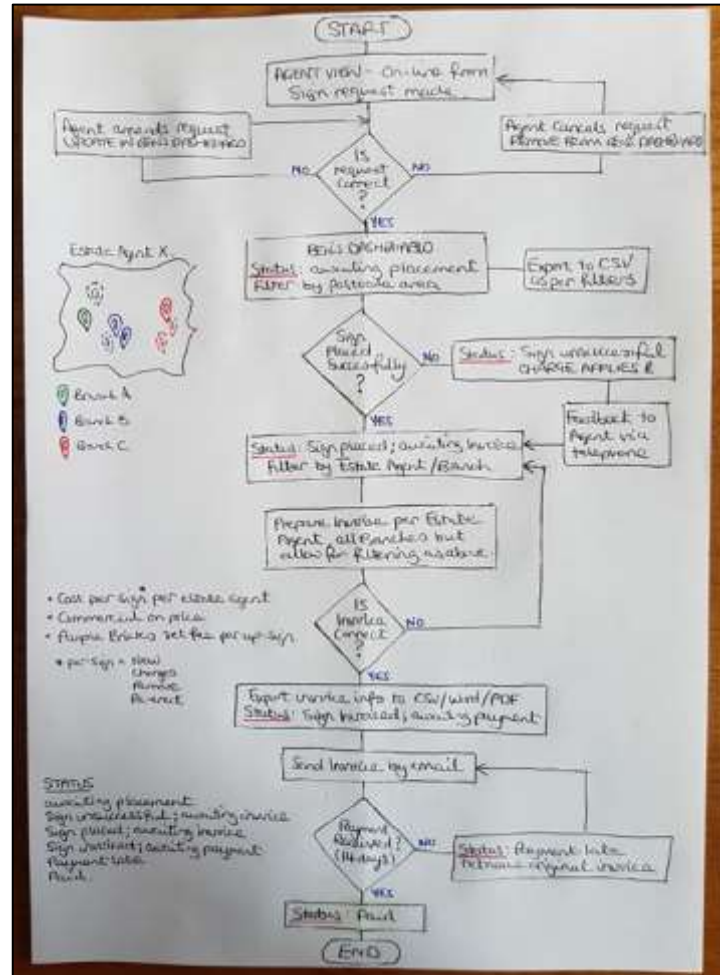 START
AGENT VIEW - On-line form
Sign request made
Agent amends request
UPDATE IN BEN'S DASHBOARD
Agent Cancels request
REMOVE FROM BEN'S DASHBOARD
Is
request
correct
?
NO
NO
YES
BEN'S DASHBOARD
Status: awaiting placement
Filter by postcode area
Export to CSV
as per filters
Estate Agent X
Branch A
Branch B
Branch C
Sign
Placed
Successfully
?
NO
Status: Sign unsuccessful
CHARGE APPLIES
YES
Feedback to
Agent via
telephone
Status: Sign placed; awaiting invoice
Filter by Estate Agent/Branch
Prepare Invoice per Estate
Agent, all Branches but
allow for filtering as above.
• Cost per sign* per estate agent
• Commercial on price
• Purple Bricks set fee per up-sign
* per sign = New
Changes
Remove
Re-erect
Is
Invoice
Correct
?
NO
YES
Export invoice info to CSV/Word/PDF
Status: Sign Invoiced; awaiting payment
Send Invoice by email
STATUS
awaiting placement
Sign unsuccessful; awaiting invoice
Sign placed; awaiting invoice
Sign invoiced; awaiting payment
Payment late
Paid.
Payment
Received?
(14 days)
NO
Status: Payment late
original invoice
YES
Status: Paid
END